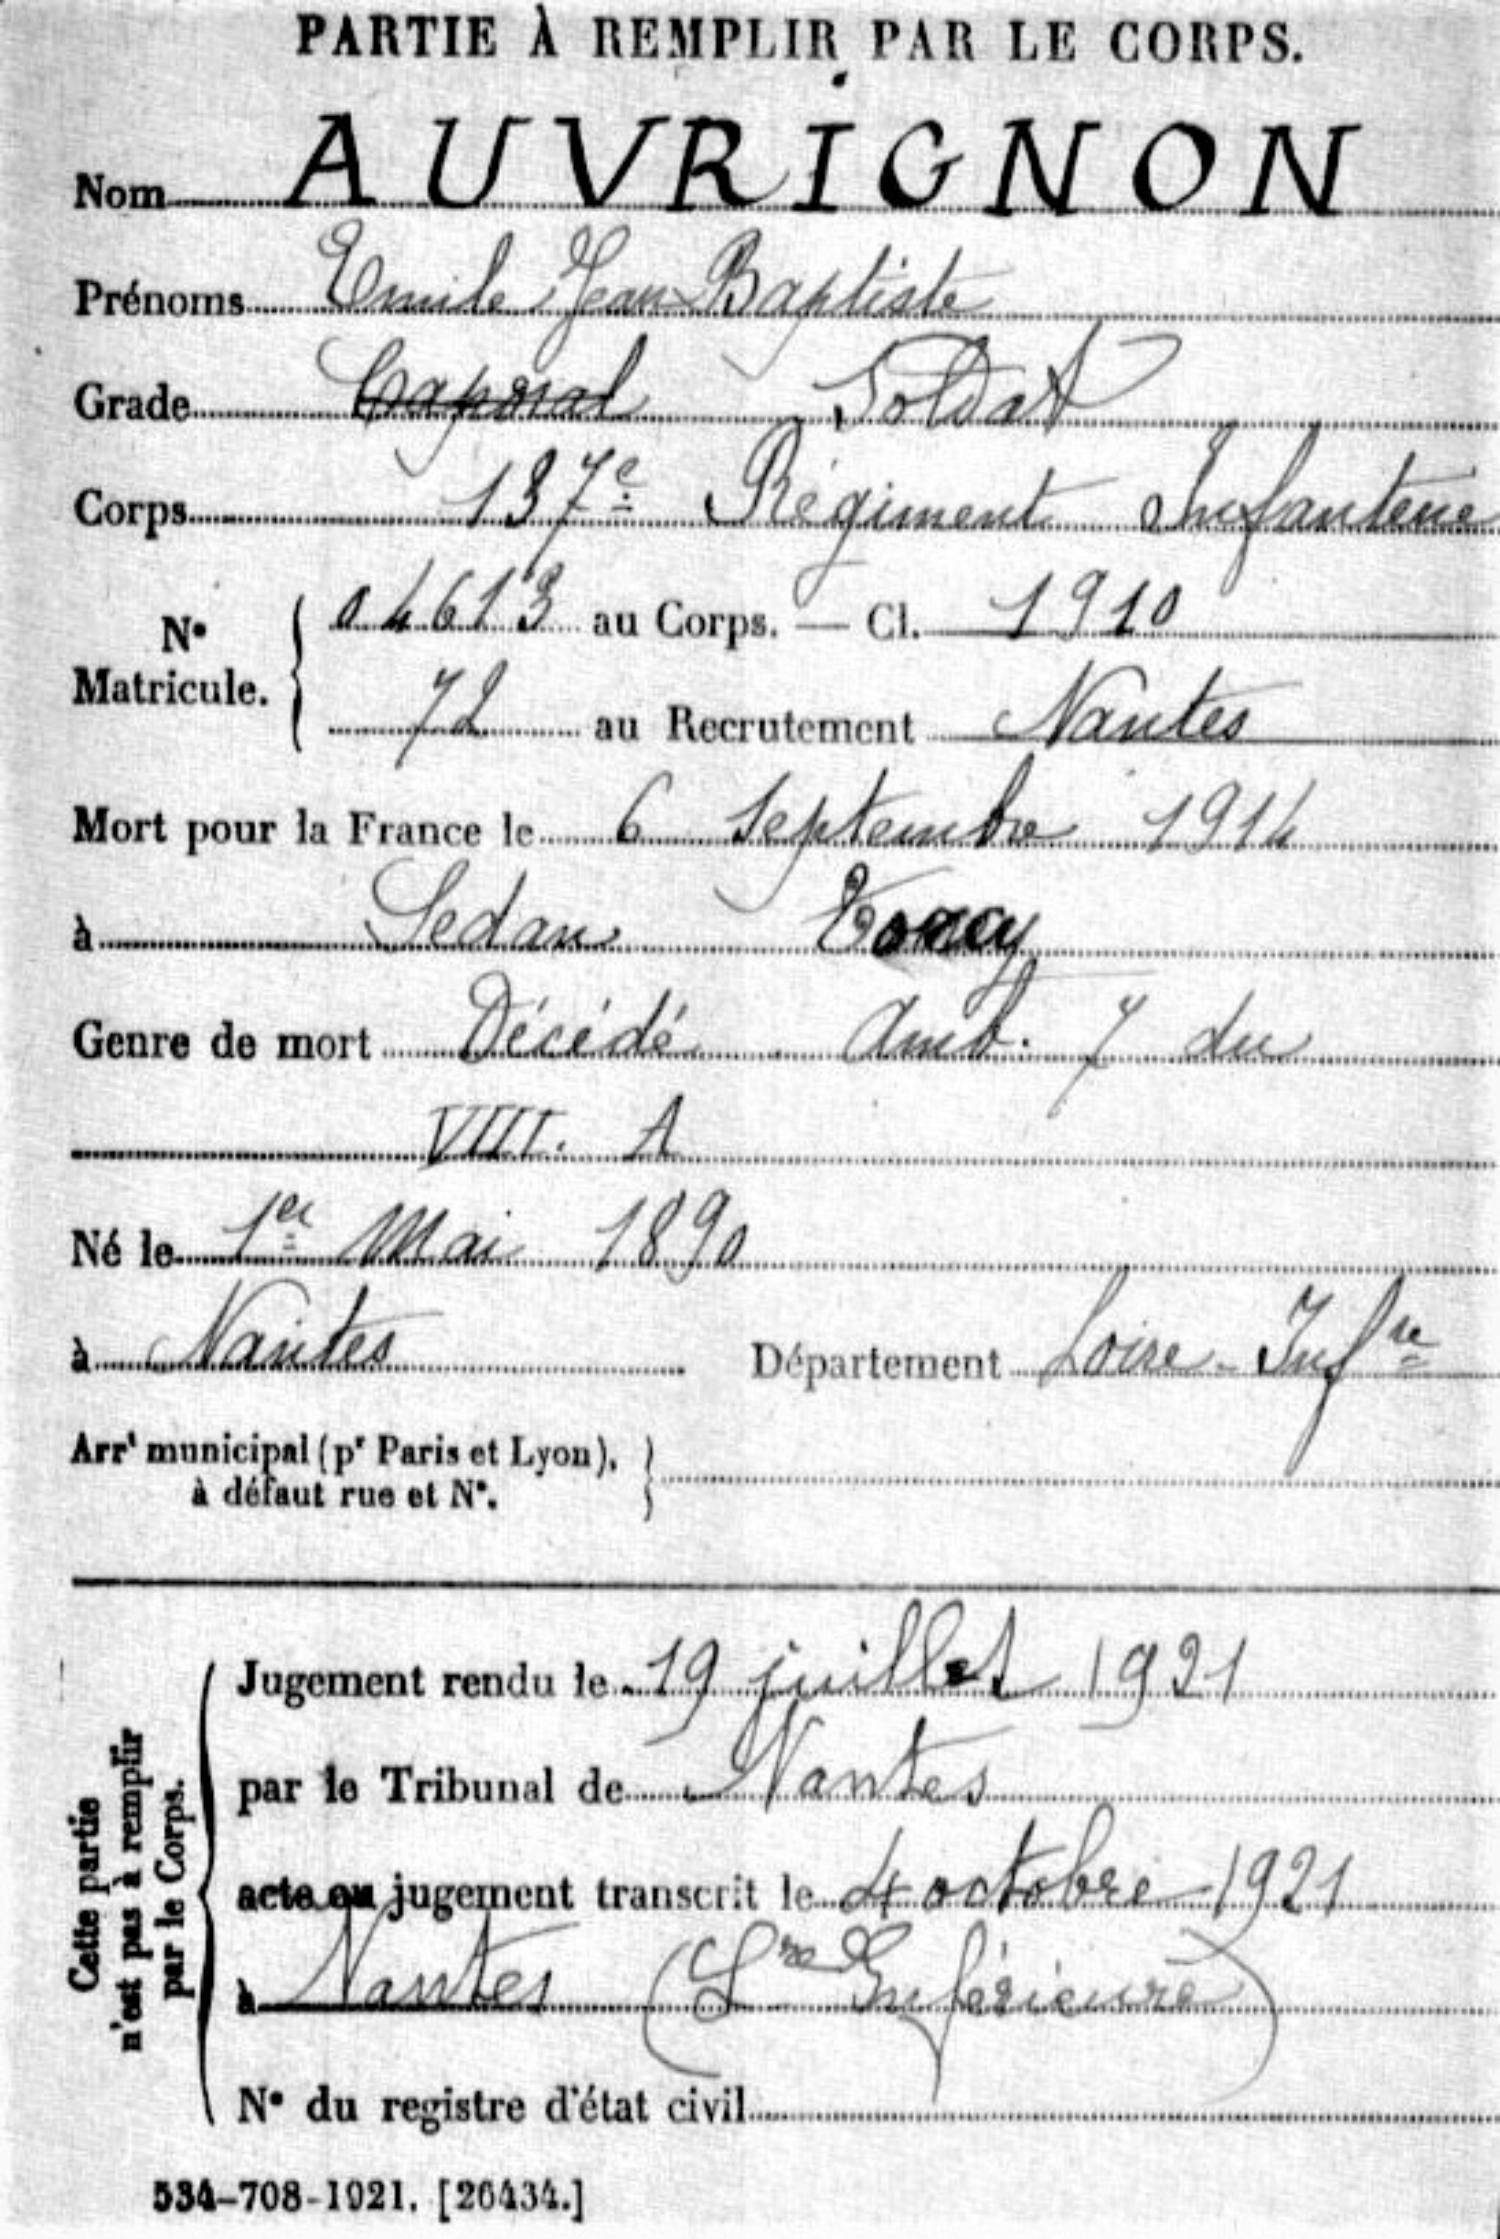 PARTIE À REMPLIR PAR LE CORPS.
Nom AUVRIGNON
Prénoms Emile Jean Baptiste
Grade Caporal Soldat
Corps 137e Régiment Infanterie
No Matricule. 04613 au Corps. — Cl. 1910
72 au Recrutement Nantes
Mort pour la France le 6 Septembre 1914
à Sedan Torcy
Genre de mort Décédé Amb. 7 du
VIII. A
Né le 1er Mai 1890
à Nantes Département Loire-Infre
Arrt municipal (pr Paris et Lyon),
à défaut rue et No.
Cette partie
n'est pas à remplir
par le Corps.
Jugement rendu le 19 juillet 1921
par le Tribunal de Nantes
acte ou jugement transcrit le 4 octobre 1921
à Nantes (Lre Inférieure)
No du registre d'état civil
534-708-1921. [26434.]